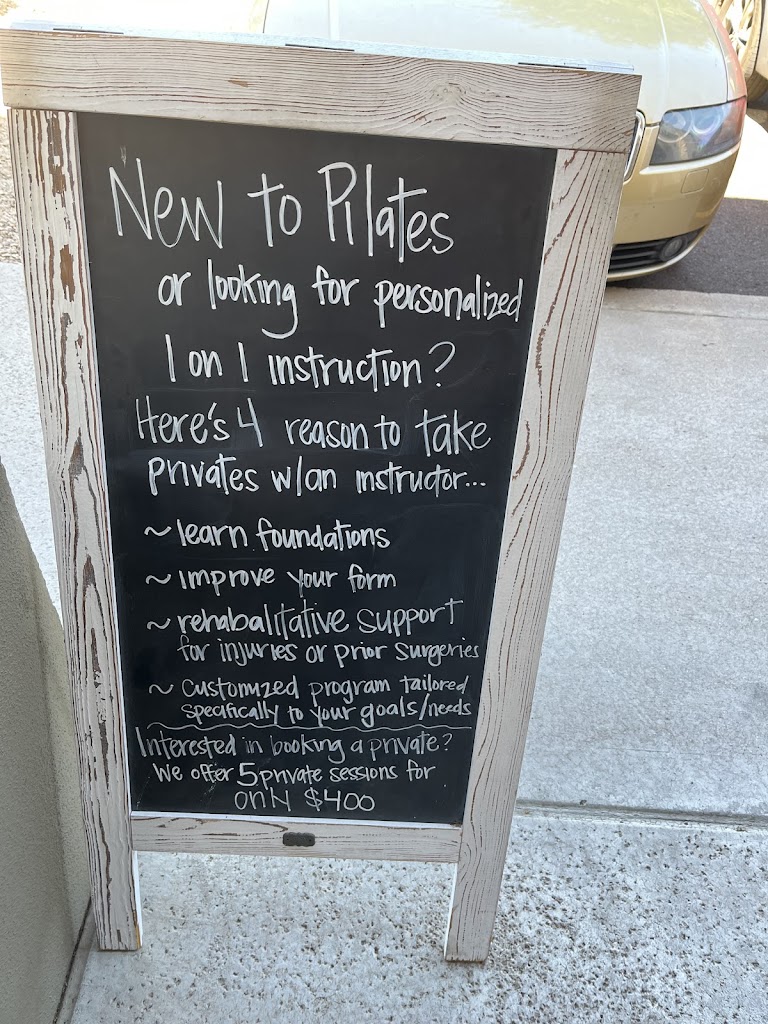 New to Pilates
or looking for personalized
1 on 1 instruction?
Here's 4 reason to take
privates w/an instructor...
~ learn foundations
~ improve your form
~ rehabalitative support
for injuries or prior surgeries
~ Customized program tailored
specifically to your goals/needs
Interested in booking a private?
We offer 5 private sessions for
only $400